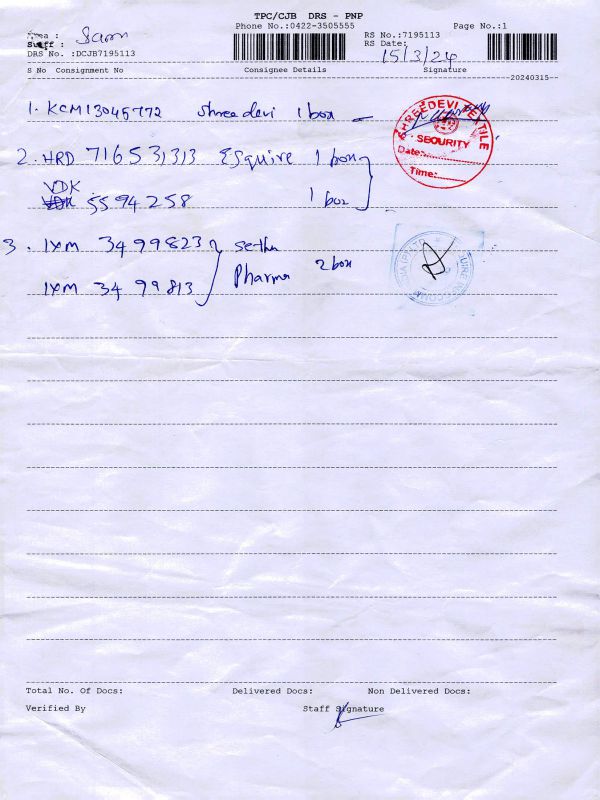 TPC/CJB DRS - PNP
Phone No.:0422-3505555
Page No.:1
Area :
Staff :
DRS No. :DCJB7195113
RS No.:7195113
RS Date:
15/3/24
S No Consignment No Consignee Details Signature
20240315
1. KCM13045772 Shreedevi 1 box
SHREEDEVI TEXTILE
SECURITY
Date:
Time:
2. HRD 716531313 Esquire 1 box
VDK
5594258 1 box
3. IXM 3499823 Sethu
Pharma 2 box
IXM 3499813
Total No. Of Docs: Delivered Docs: Non Delivered Docs:
Verified By Staff Signature